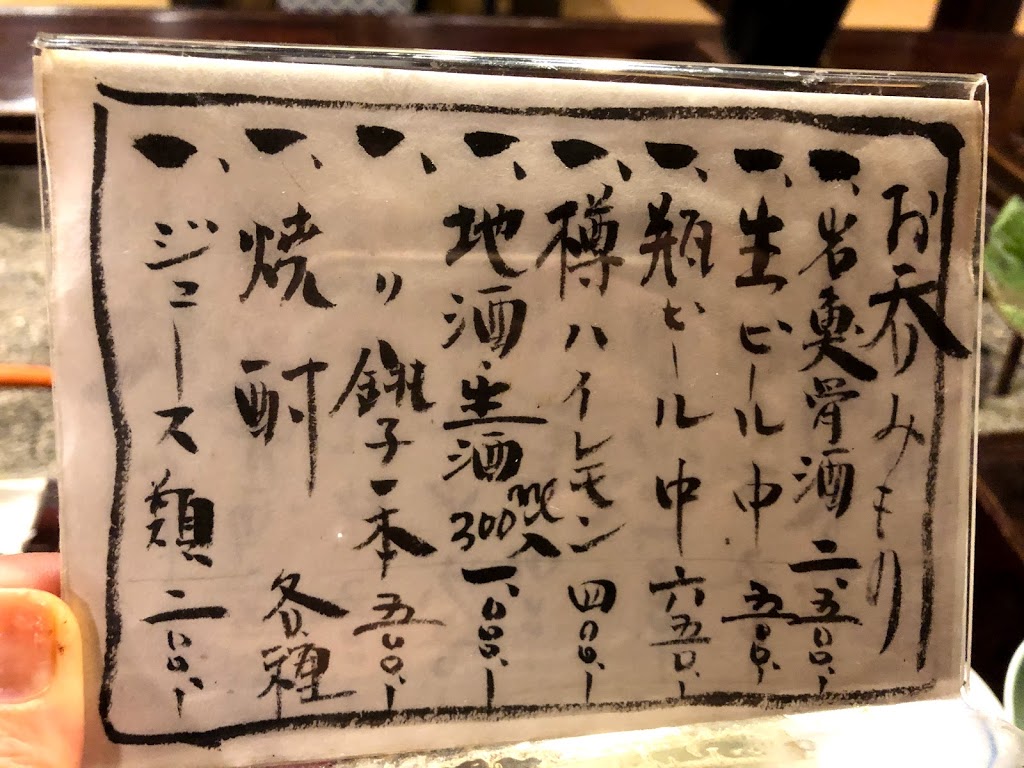 お呑みもの
一、岩魚骨酒 二、五〇〇、ー
一、生ビール中 五〇〇、ー
一、瓶ビール中 六五〇、ー
一、樽ハイレモン 四〇〇、ー
一、地酒・生酒 300ml入 一、〇〇〇、ー
一、〃 銚子一本 五〇〇、ー
一、焼酎 各種
一、ジュース類 二〇〇、ー